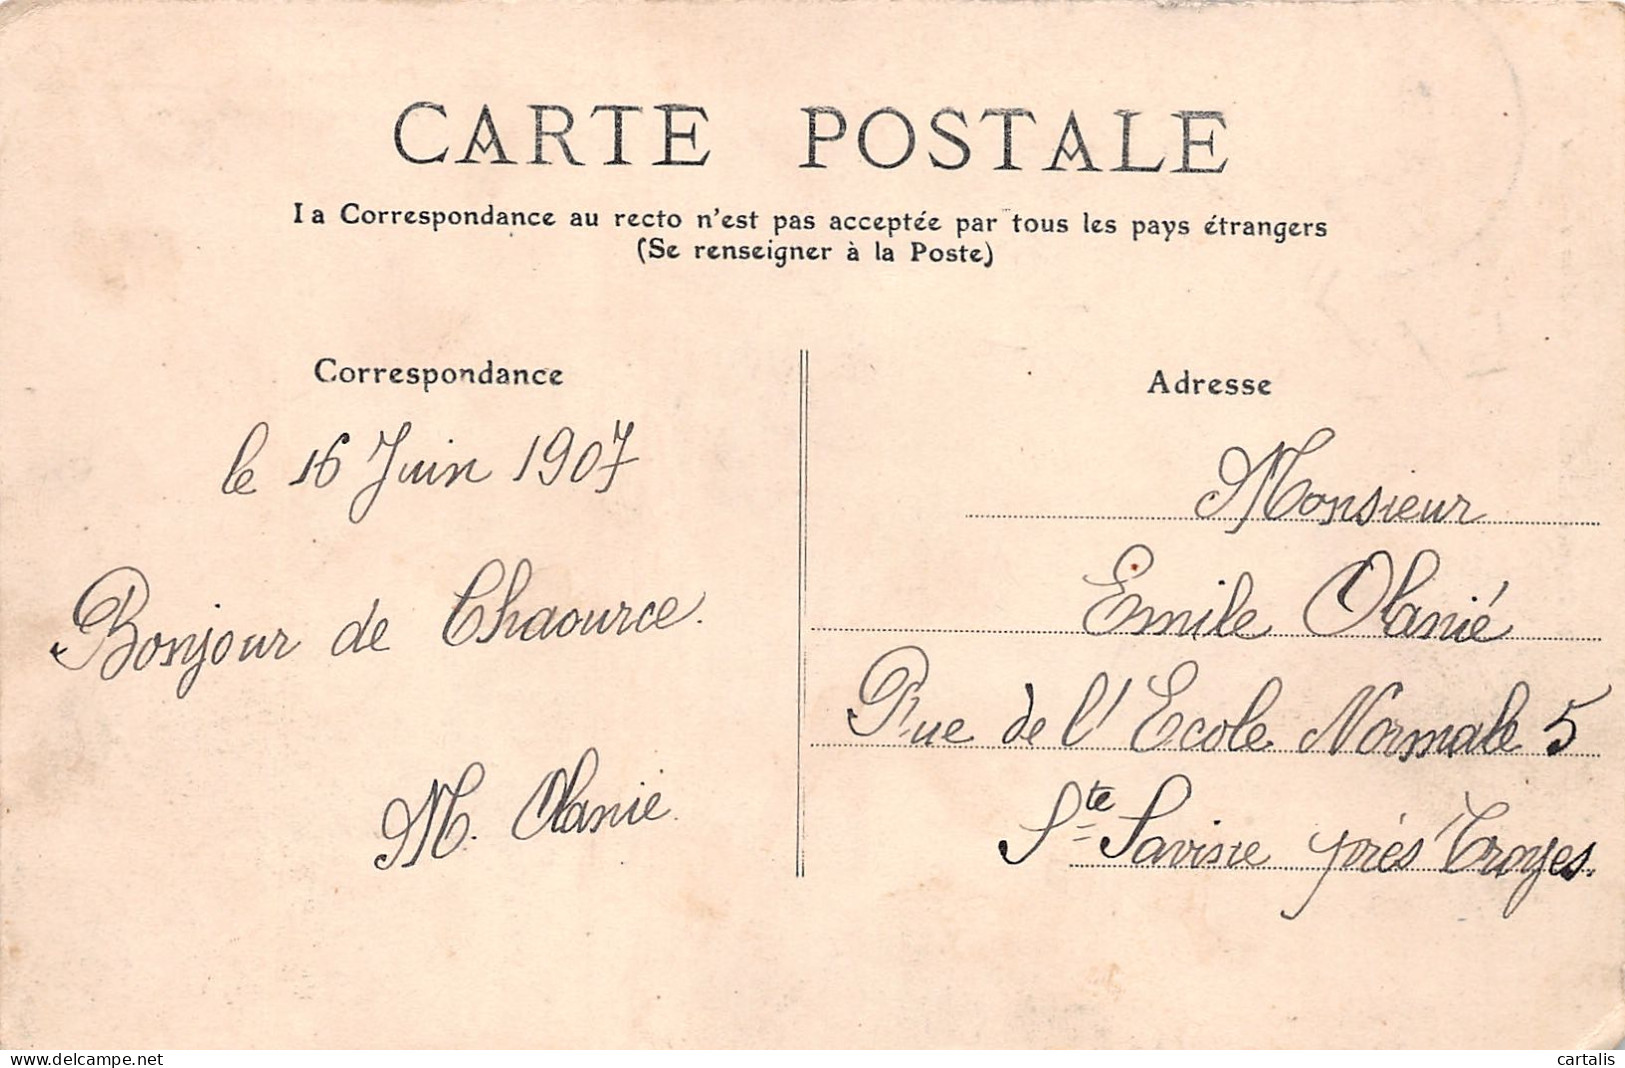 CARTE POSTALE
La Correspondance au recto n'est pas acceptée par tous les pays étrangers
(Se renseigner à la Poste)
Correspondance
le 16 Juin 1907
Bonjour de Chaource.
M. Olanié.
Adresse
Monsieur
Emile Olanié
Rue de l'Ecole Normale 5
Ste Savine près Troyes.
www.delcampe.net
cartalis